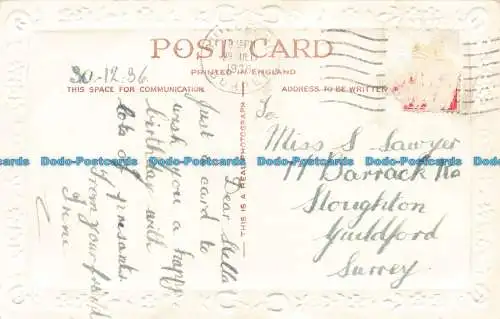 POST CARD
PRINTED IN ENGLAND
30-12-36.
THIS SPACE FOR COMMUNICATION.
ADDRESS TO BE WRITTEN
THIS IS A REAL PHOTOGRAPH
Dear Stella
Just a card to
wish you a happy
birthday with
lots of presants.
from your friend
June
To
Miss S Sawyer
77 Barrack Rd
Stoughton
Guildford
Surrey
Dodo-Postcards Dodo-Postcards Dodo-Postcards Dodo-Postcards